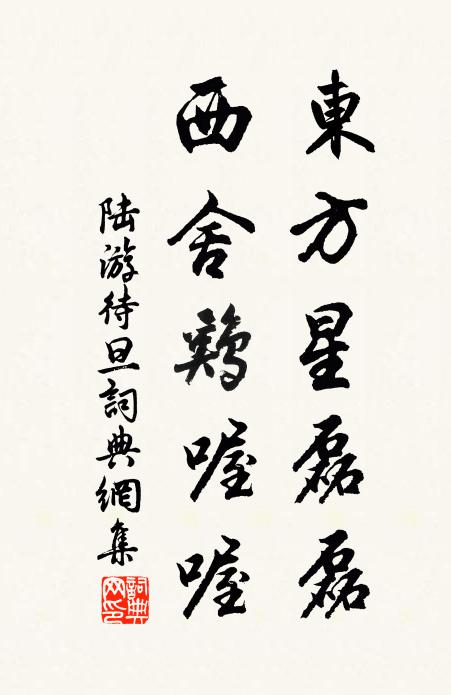 東方星磊磊
西舍鷄喔喔
陸游待旦詞典網集
詞典網印